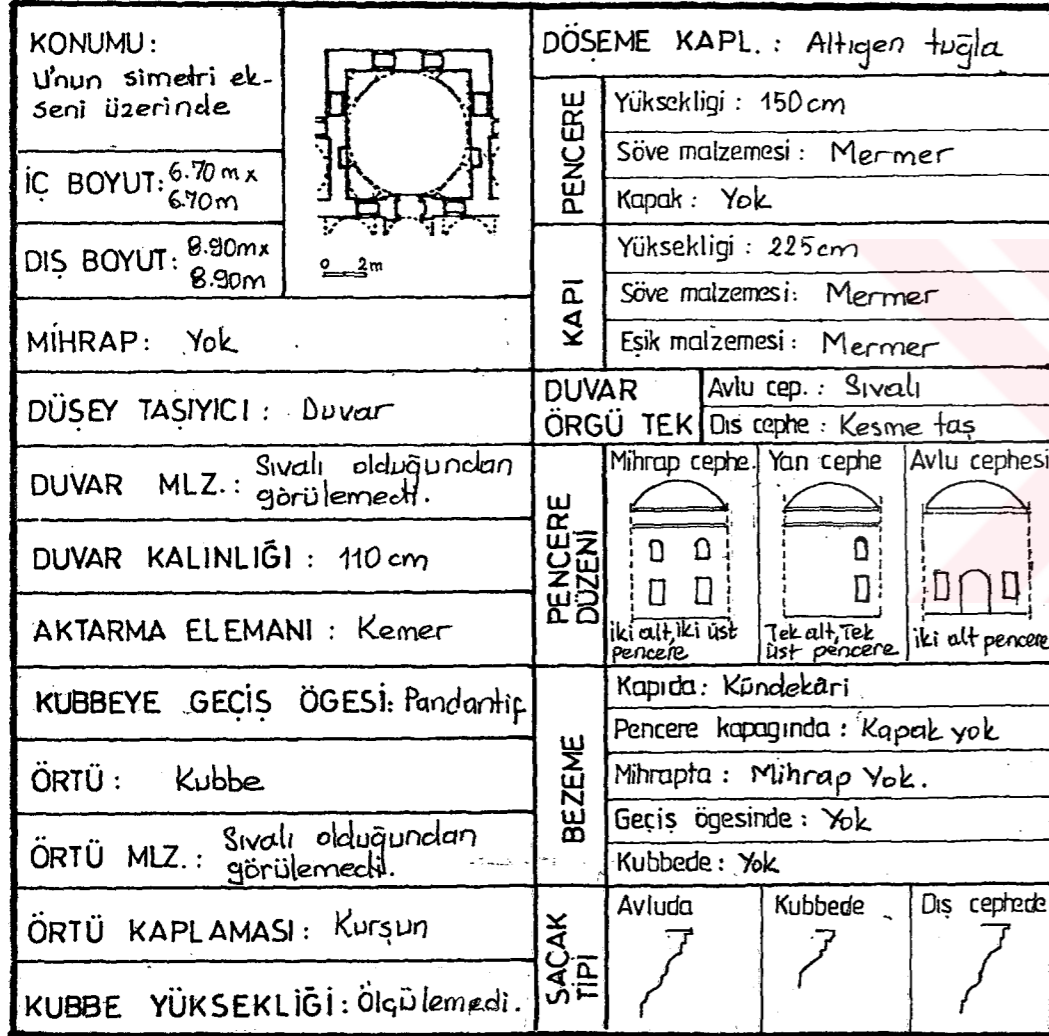 KONUMU:
U'nun simetri ek-
seni üzerinde
İÇ BOYUT: 6.70 m x
6.70m
DIŞ BOYUT: 8.90mx
8.90m
0 2m
MİHRAP: Yok
DÜŞEY TAŞIYICI: Duvar
DUVAR MLZ.: Sıvalı olduğundan
görülemedi.
DUVAR KALINLIĞI: 110 cm
AKTARMA ELEMANI: Kemer
KUBBEYE GEÇİŞ ÖGESİ: Pandantif
ÖRTÜ: Kubbe
ÖRTÜ MLZ.: Sıvalı olduğundan
görülemedi.
ÖRTÜ KAPLAMASI: Kurşun
KUBBE YÜKSEKLİĞİ: Ölçülemedi.
DÖŞEME KAPL.: Altıgen tuğla
PENCERE
Yüksekligi: 150cm
Söve malzemesi: Mermer
Kapak: Yok
KAPI
Yüksekligi: 225cm
Söve malzemesi: Mermer
Eşik malzemesi: Mermer
DUVAR
ÖRGÜ TEK
Avlu cep.: Sıvalı
Dıs cephe: Kesme taş
PENCERE
DÜZENİ
Mihrap cephe.
iki alt, iki üst
pencere
Yan cephe
Tek alt, Tek
üst pencere
Avlu cephesi
iki alt pencere
BEZEME
Kapıda: Kündekâri
Pencere kapagında: Kapak yok
Mihrapta: Mihrap Yok.
Geçiş ögesinde: Yok
Kubbede: Yok
SAÇAK
TİPİ
Avluda
Kubbede
Dış cephede